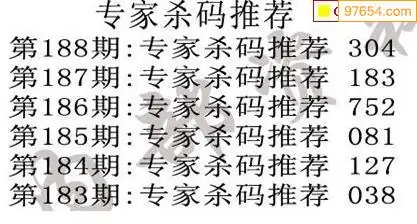 专家杀码推荐
97654.com
第188期:专家杀码推荐 304
第187期:专家杀码推荐 183
第186期:专家杀码推荐 752
第185期:专家杀码推荐 081
第184期:专家杀码推荐 127
第183期:专家杀码推荐 038